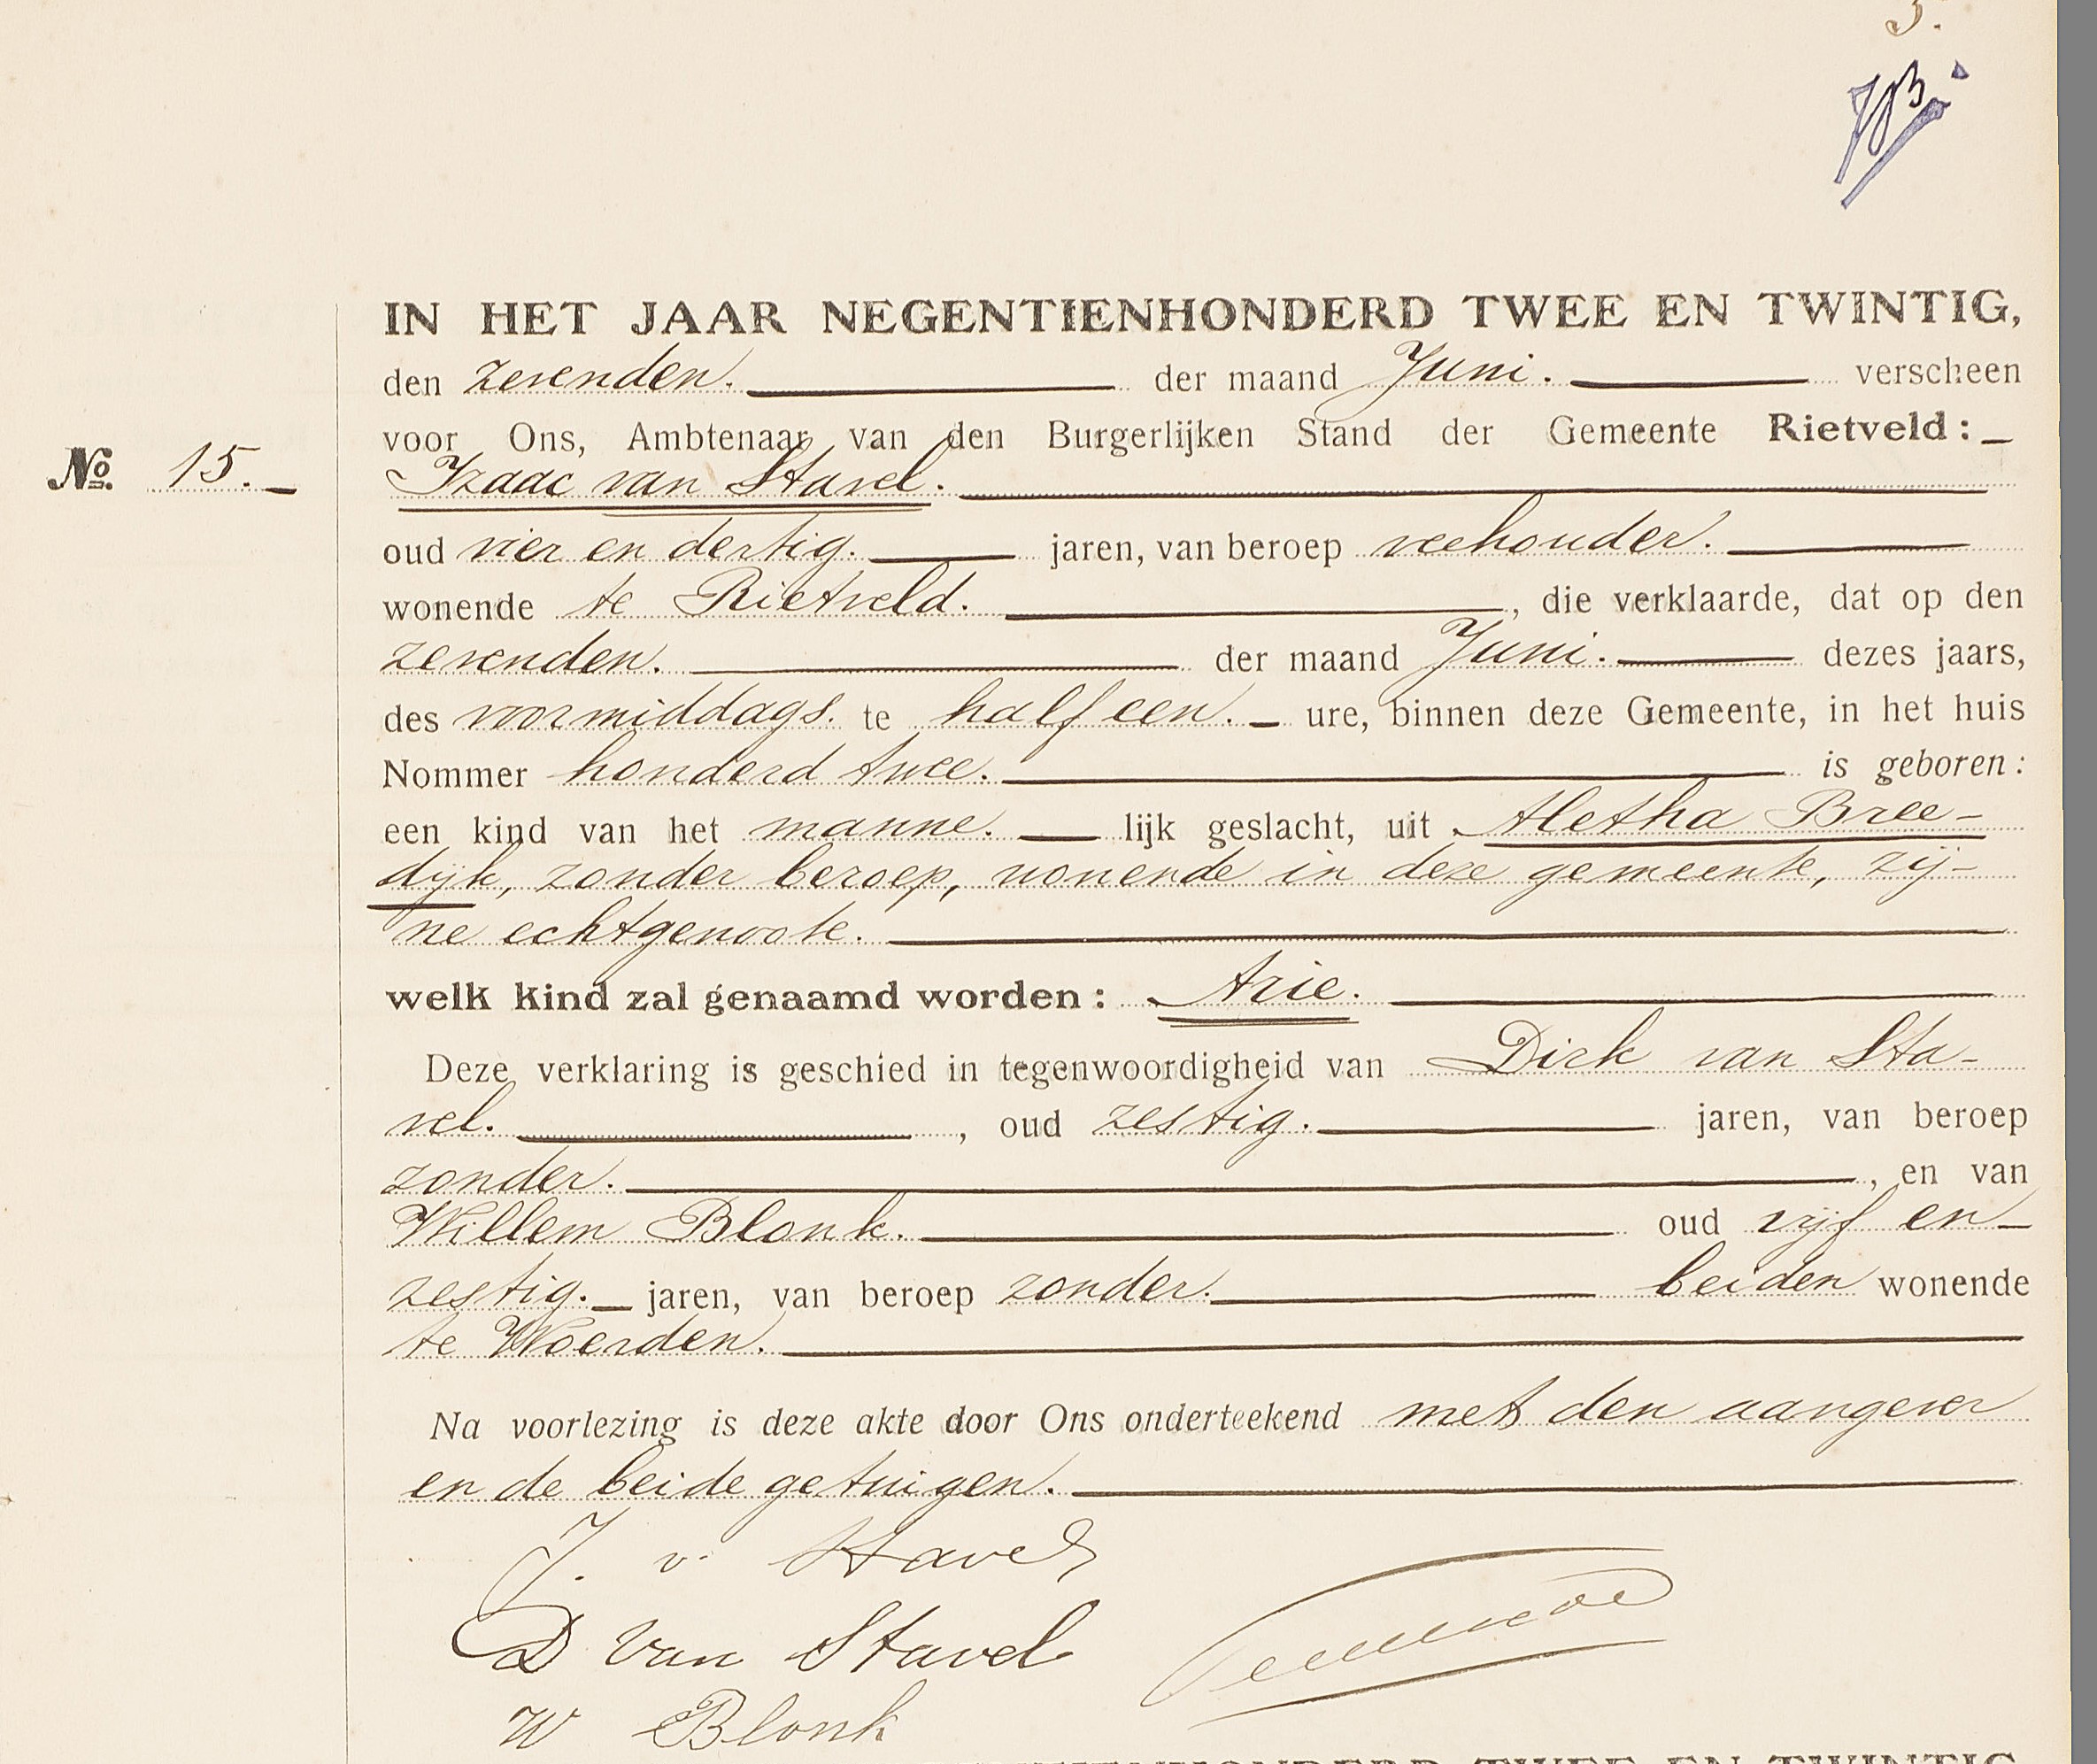 3.
IN HET JAAR NEGENTIENHONDERD TWEE EN TWINTIG,
den zevenden. der maand Juni. verscheen
voor Ons, Ambtenaar van den Burgerlijken Stand der Gemeente Rietveld:
No. 15.
Izaac van Stavel.
oud vier en dertig. jaren, van beroep veehouder.
wonende te Rietveld. , die verklaarde, dat op den
zevenden. der maand Juni. dezes jaars,
des voormiddags. te half een. ure, binnen deze Gemeente, in het huis
Nommer honderd twee. is geboren:
een kind van het manne. lijk geslacht, uit Aletha Bree-
dijk, zonder beroep, wonende in deze gemeente, zij-
ne echtgenoote.
welk kind zal genaamd worden: Arie.
Deze verklaring is geschied in tegenwoordigheid van Dirk van Sta-
vel. , oud zestig. jaren, van beroep
zonder. , en van
Willem Blonk. oud vijf en
zestig. jaren, van beroep zonder. beiden wonende
te Woerden.
Na voorlezing is deze akte door Ons onderteekend met den aangever
en de beide getuigen.
J. v. Stavel
D van Stavel
W Blonk